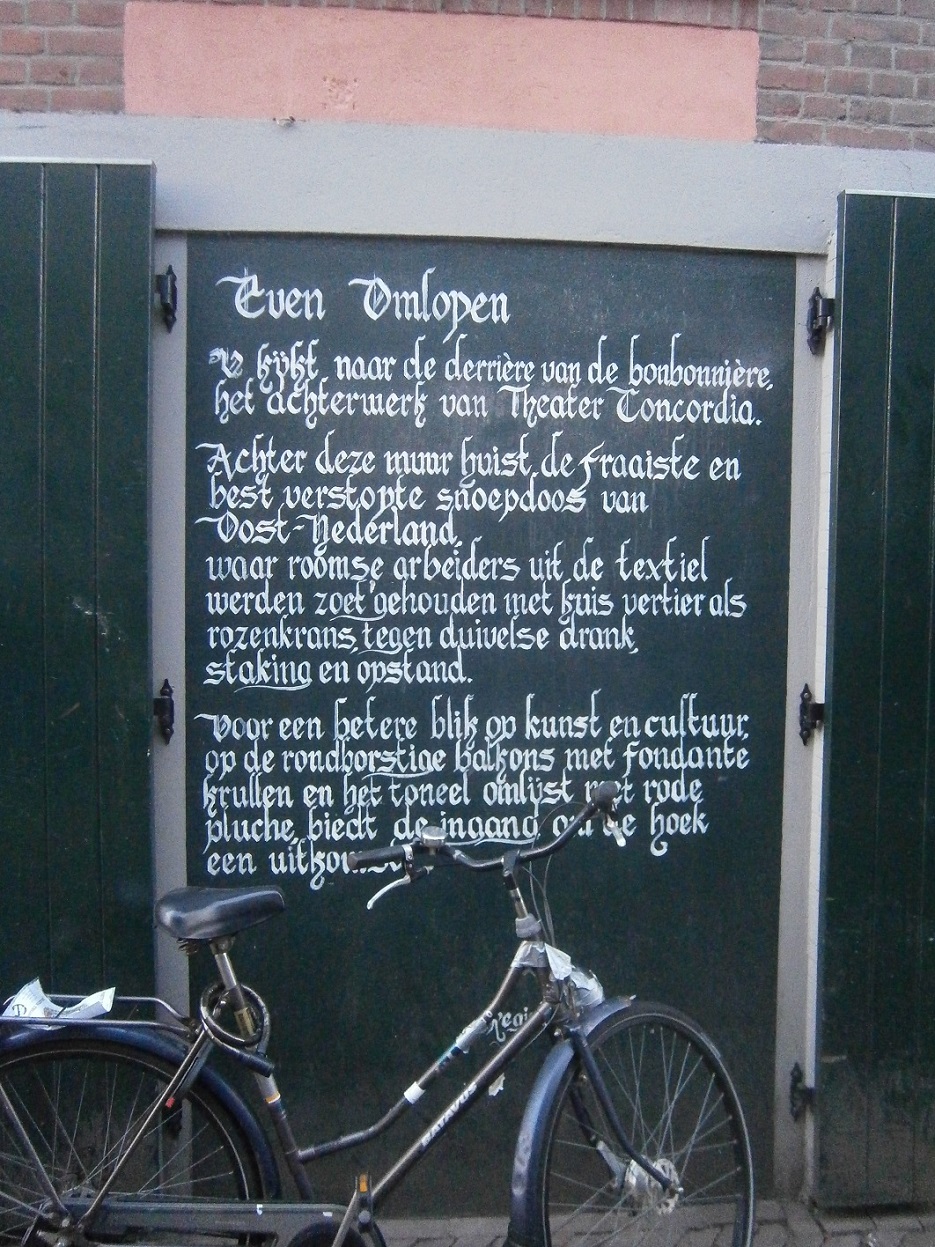 Even Omlopen
U kijkt naar de derrière van de bonbonnière,
het achterwerk van Theater Concordia.
Achter deze muur huist de fraaiste en
best verstopte snoepdoos van
Oost-Nederland,
waar roomse arbeiders uit de textiel
werden zoet gehouden met kuis vertier als
rozenkrans tegen duivelse drank,
staking en opstand.
Voor een betere blik op kunst en cultuur,
op de rondborstige balkons met fondante
krullen en het toneel omlijst met rode
pluche, biedt de ingang om de hoek
een
BATAVUS